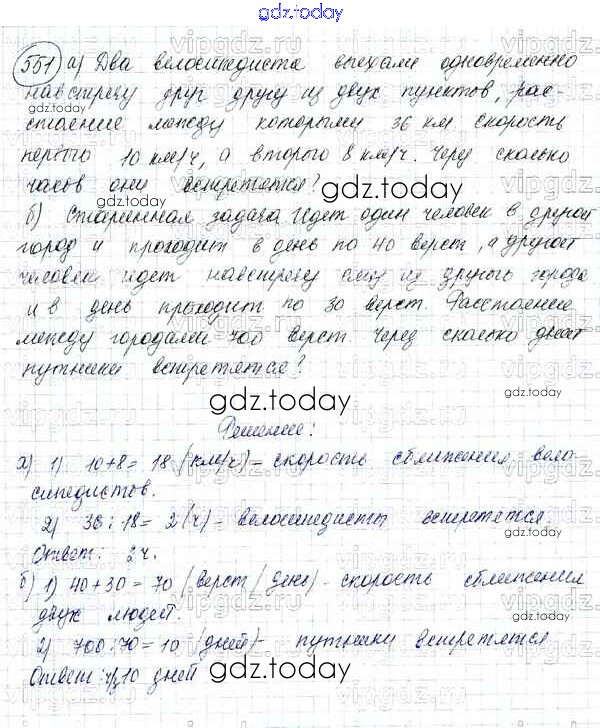 gdz.today
551 а) Два велосипедиста выехали одновременно
навстречу друг другу из двух пунктов, рас-
gdz.today
стояние между которыми 36 км. Скорость
первого 10 км/ч, а второго 8 км/ч. Через сколько
часов они встретятся?
gdz.today
б) Старинная задача. Идет один человек в другой
город и проходит в день по 40 верст, а другой
человек идет навстречу ему из другого города
и в день проходит по 30 верст. Расстояние
между городами 700 верст. Через сколько дней
путники встретятся?
gdz.today
gdz.today
Решение:
а) 1) 10+8= 18 (км/ч) - скорость сближения вело-
сипедистов.
2) 36:18= 2 (ч) - велосипедисты встретятся
Ответ: 2ч.
gdz.today
б) 1) 40+30=70 (верст/день) - скорость сближения
двух людей.
2) 700:70=10 (дней) - путники встретятся
Ответ: 10 дней
gdz.today